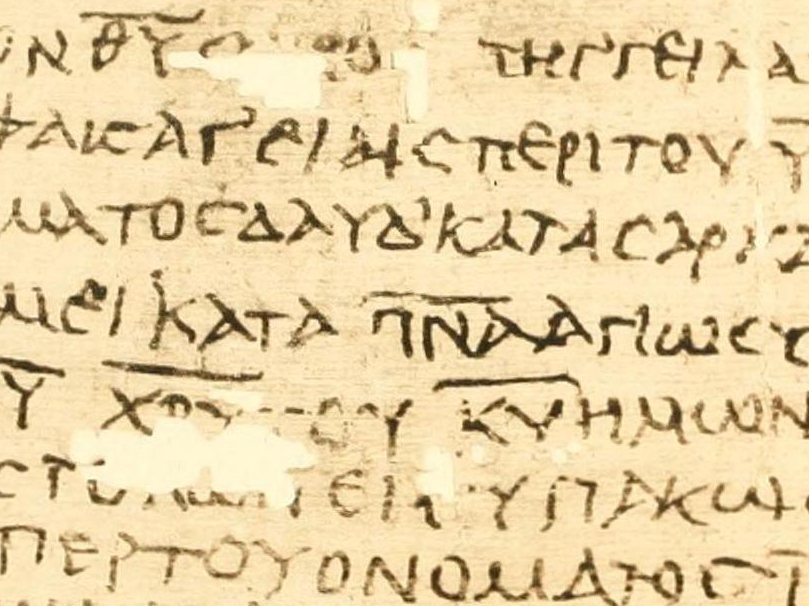 ΟΝ Θ̅Υ̅ ΠΗΓΓΕΙΛΑ
ΦΑΙC ΑΓΕΙΑΙC ΠΕΡΙ ΤΟΥ Υ̅
ΜΑΤΟC ΔΑΥΔ ΚΑΤΑ CΑΡΚΑ
ΜΕΙ ΚΑΤΑ Π̅Ν̅Α̅ ΑΓΙΩCΥ
Υ̅ Χ̅Ρ̅Υ̅ ΤΟΥ Κ̅Υ̅ ΗΜΩΝ
CΤΟΛΩΝ ΕΙC ΥΠΑΚΩΗ
ΠΕΡ ΤΟΥ ΟΝΟΜΑΤΟC Ι̅